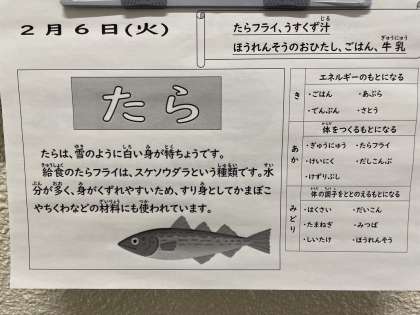 2月6日(火)
たらフライ、うすくず汁
ほうれんそうのおひたし、ごはん、牛乳
たら
たらは、雪のように白い身が特ちょうです。
給食のたらフライは、スケソウダラという種類です。水
分が多く、身がくずれやすいため、すり身としてかまぼこ
やちくわなどの材料にも使われています。
き
エネルギーのもとになる
・ごはん ・あぶら
・でんぷん ・さとう
あか
体をつくるもとになる
・ぎゅうにゅう ・たらフライ
・けいにく ・だしこんぶ
・けずりぶし
みどり
体の調子をととのえるもとになる
・はくさい ・だいこん
・たまねぎ ・みつば
・しいたけ ・ほうれんそう